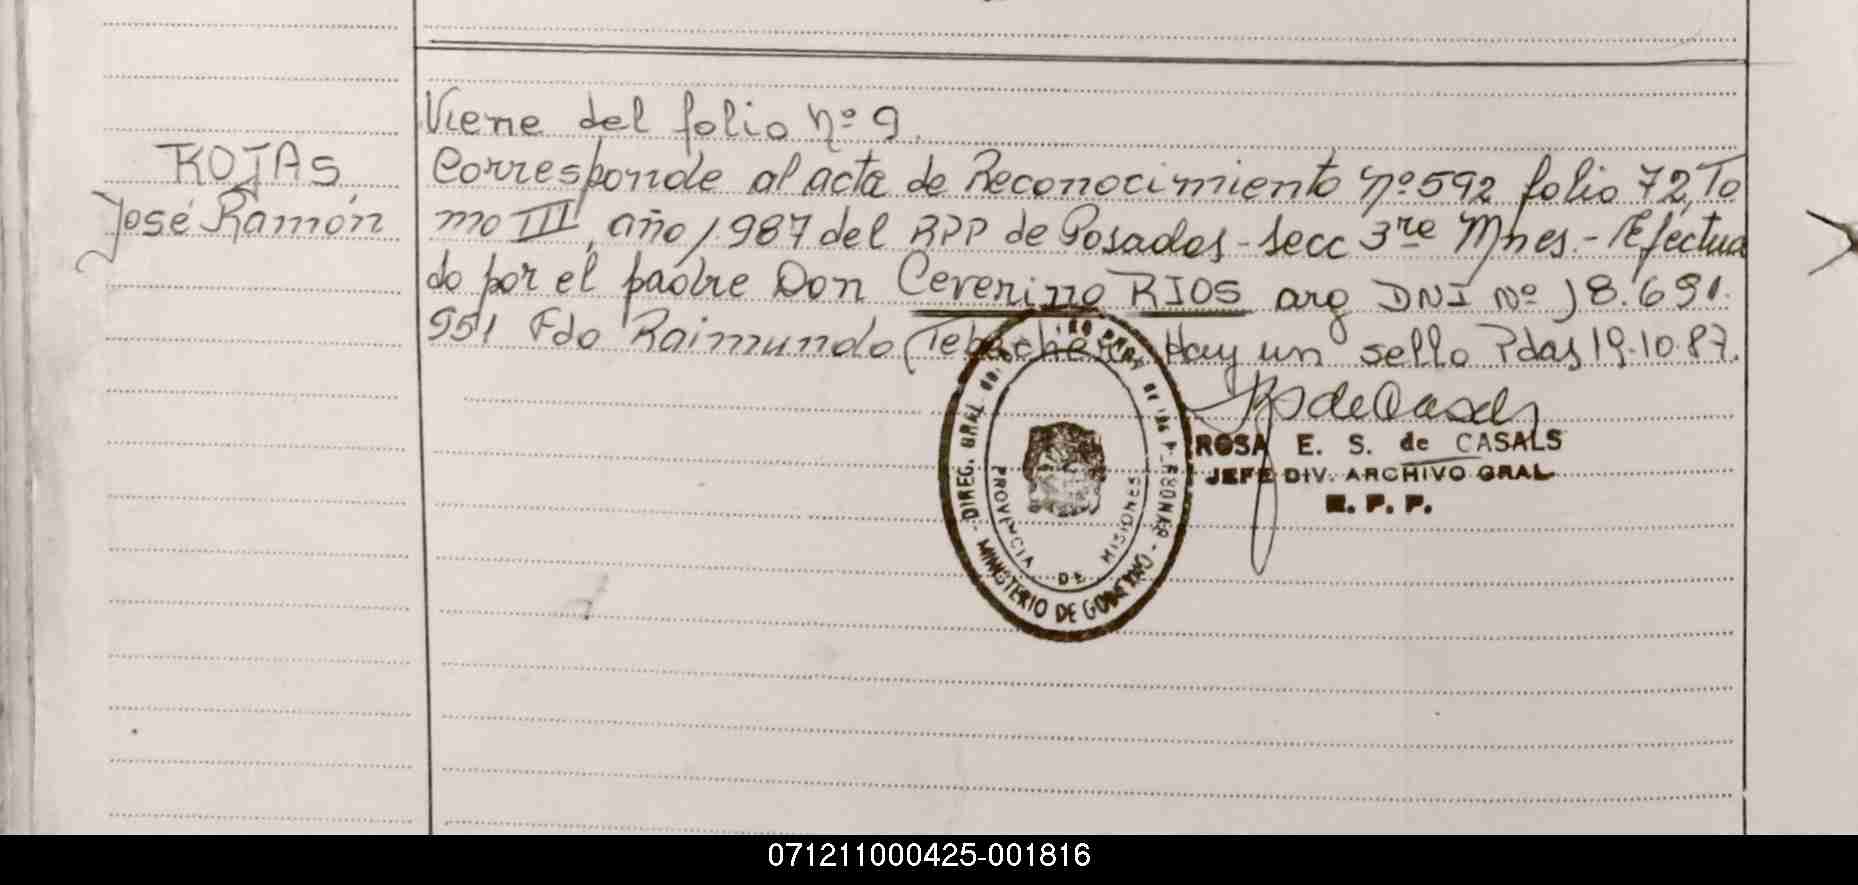 Viene del folio nº 9.
ROJAS
José Ramón
Corresponde al acta de Reconocimiento nº 592 folio 72, To
mo III, año 1987 del RPP de Posadas - Secc 3re Mnes.- Efectua
do por el padre Don Ceverino RIOS arg DNI Nº 18.691.
951 Fdo Raimundo Hay un sello Pdas 19.10.87.
ROSA E. S. de CASALS
JEFE DIV. ARCHIVO GRAL
R. P. P.
DIREG. GRAL. DE LAS PERSONAS
PROVINCIA DE MISIONES
- MINISTERIO DE GOBIERNO -
071211000425-001816